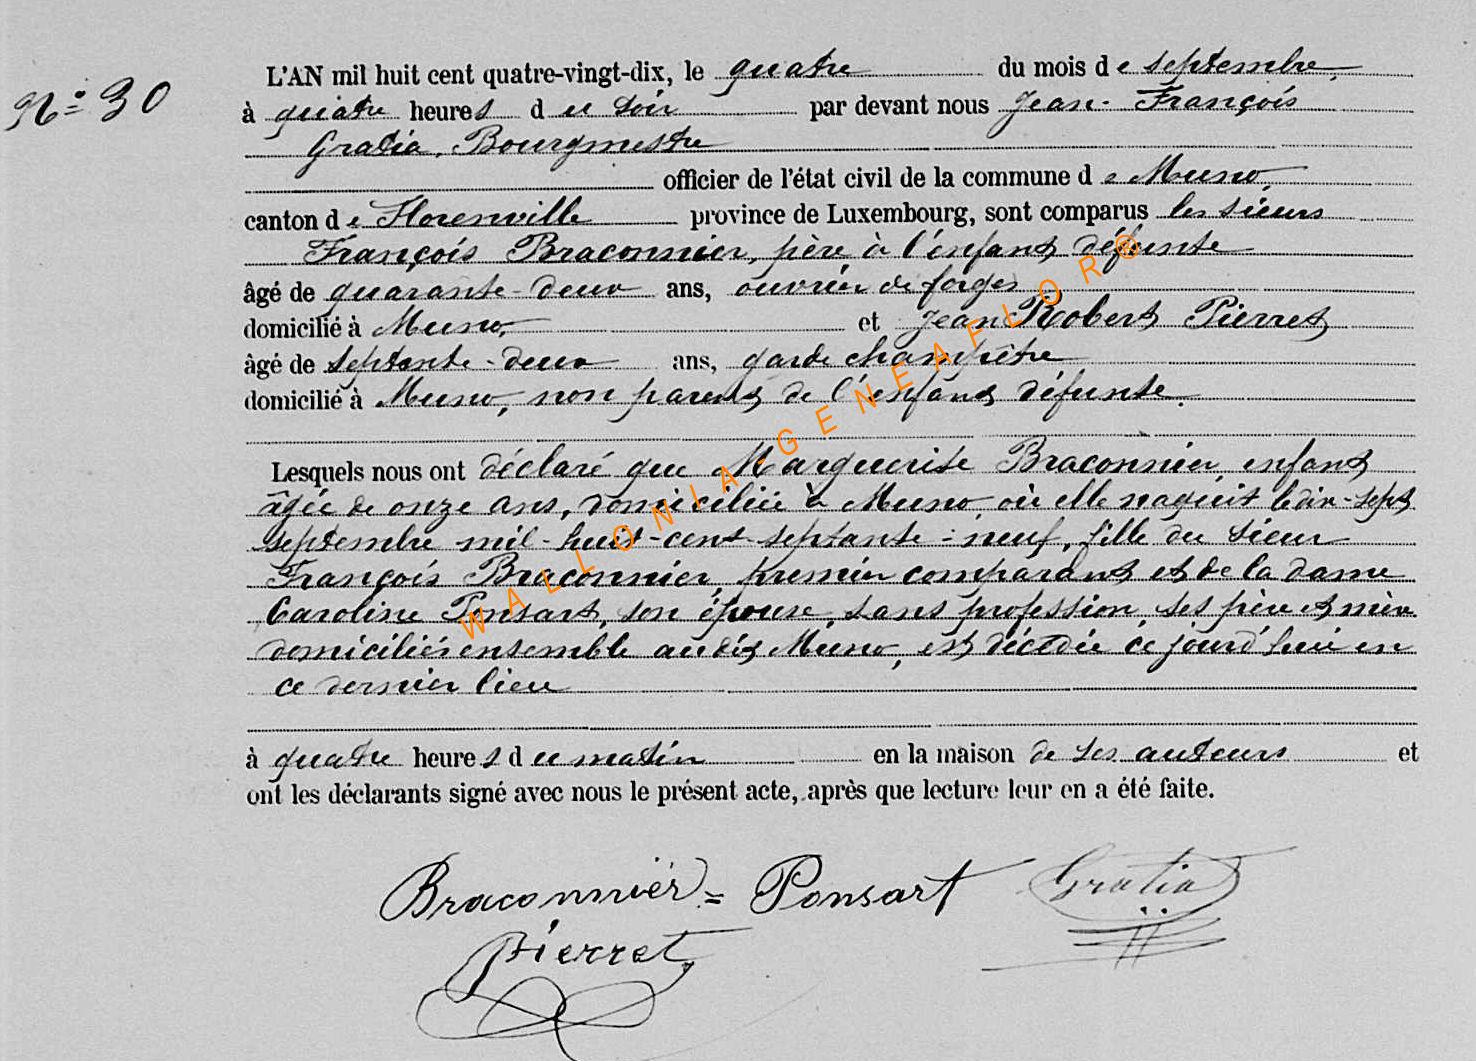 Nº 30
L'AN mil huit cent quatre-vingt-dix, le quatre du mois de septembre,
à quatre heures du soir par devant nous Jean-François
Gratia, Bourgmestre
officier de l'état civil de la commune de Muno,
canton de Florenville province de Luxembourg, sont comparus les sieurs
François Braconnier, père à l'enfant défunte
âgé de quarante-deux ans, ouvrier de forges
domicilié à Muno, et Jean Robert Pierret
âgé de septante-deux ans, garde champêtre
domicilié à Muno, non parent de l'enfant défunte.
Lesquels nous ont déclaré que Marguerite Braconnier, enfant
âgée de onze ans, domiciliée à Muno, où elle naquit le dix-sept
septembre mil-huit-cent-septante-neuf, fille du sieur
François Braconnier, premier comparant et de la dame
Caroline Ponsart, son épouse, sans profession, ses père et mère
domiciliés ensemble au dit Muno, est décédée ce jourd'hui en
ce dernier lieu
à quatre heures du matin en la maison de ses auteurs et
ont les déclarants signé avec nous le présent acte, après que lecture leur en a été faite.
Braconnier = Ponsart Gratia
Pierret
WALLONIA-GENEAFLOR®